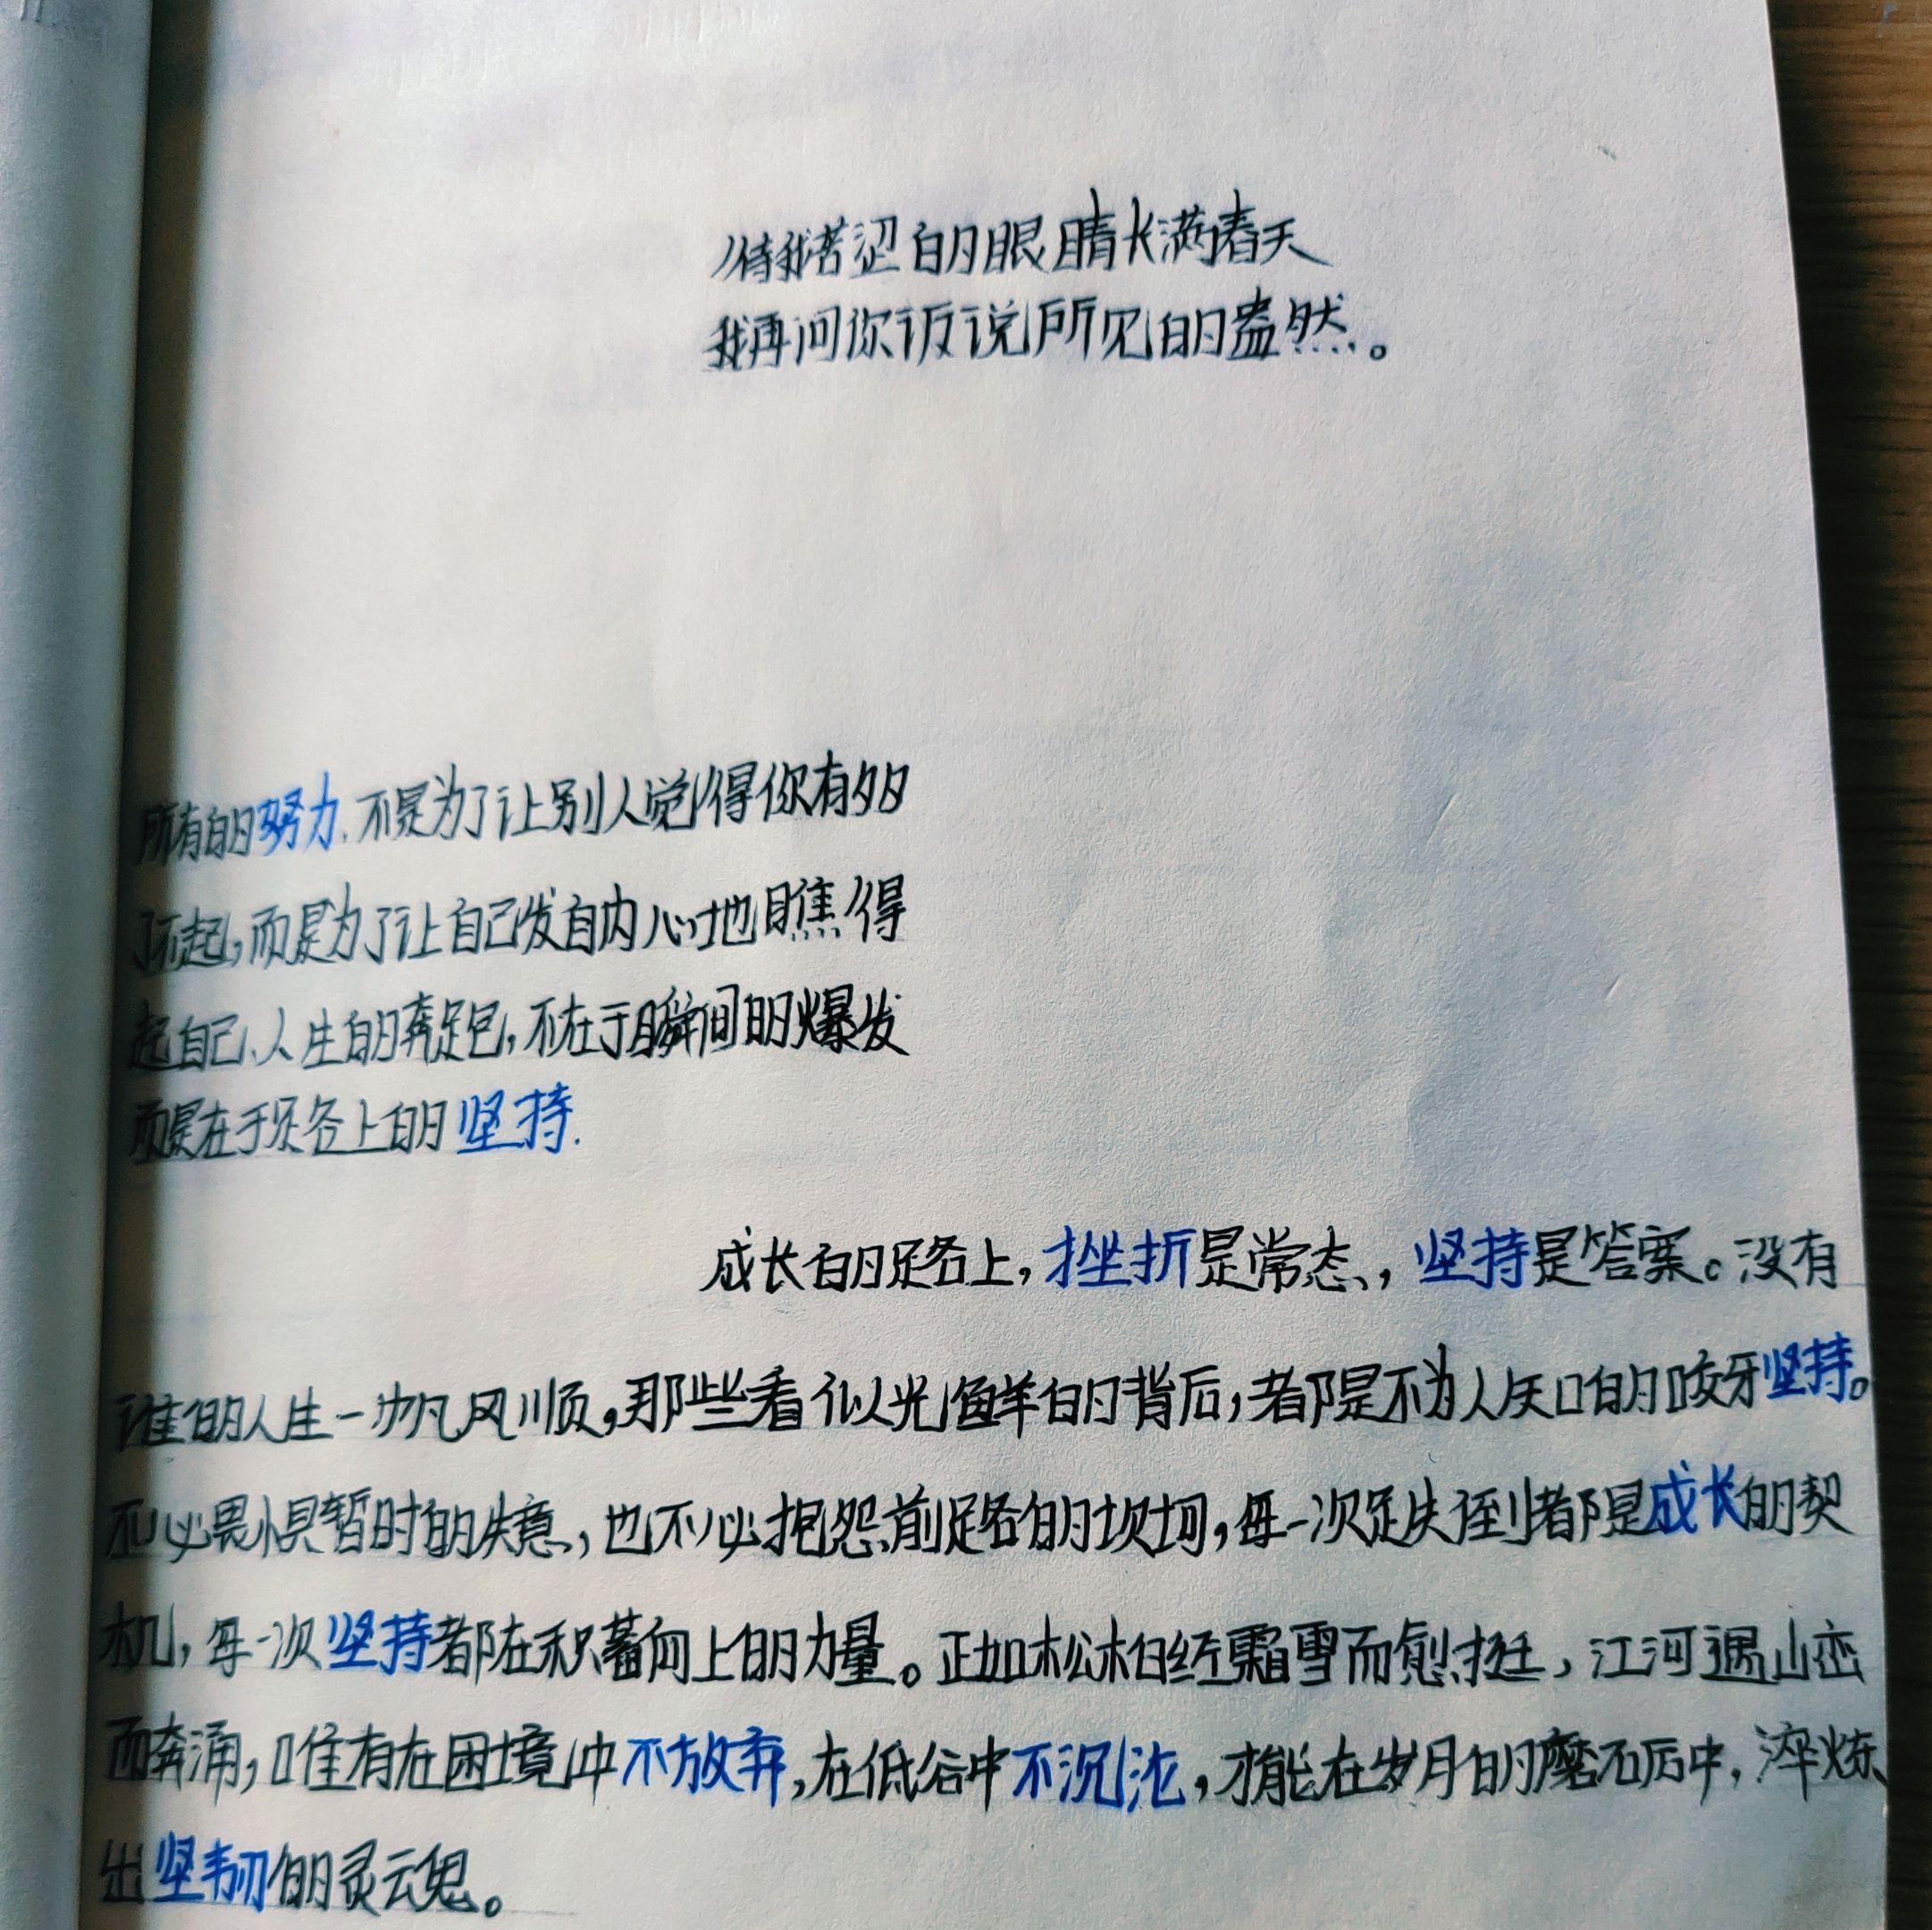 待我苦涩的眼睛长满春天
我再问你诉说所见的盎然。
所有的努力.不是为了让别人觉得你有多
了不起,而是为了让自己发自内心地瞧得
起自己、人生的奔跑,不在于瞬间的爆发
而是在于路上的坚持.
成长的路上,挫折是常态,坚持是答案。没有
谁的人生一帆风顺,那些看似光鲜的背后,都是不为人知的咬牙坚持。
不必畏惧暂时的失意,也不必抱怨前路的坎坷,每一次跌倒都是成长的契
机,每一次坚持都在积蓄向上的力量。正如松柏经霜雪而愈挺,江河遇山峦
而奔涌,唯有在困境中不放弃,在低谷中不沉沦,才能在岁月的磨砺中,淬炼
出坚韧的灵魂。